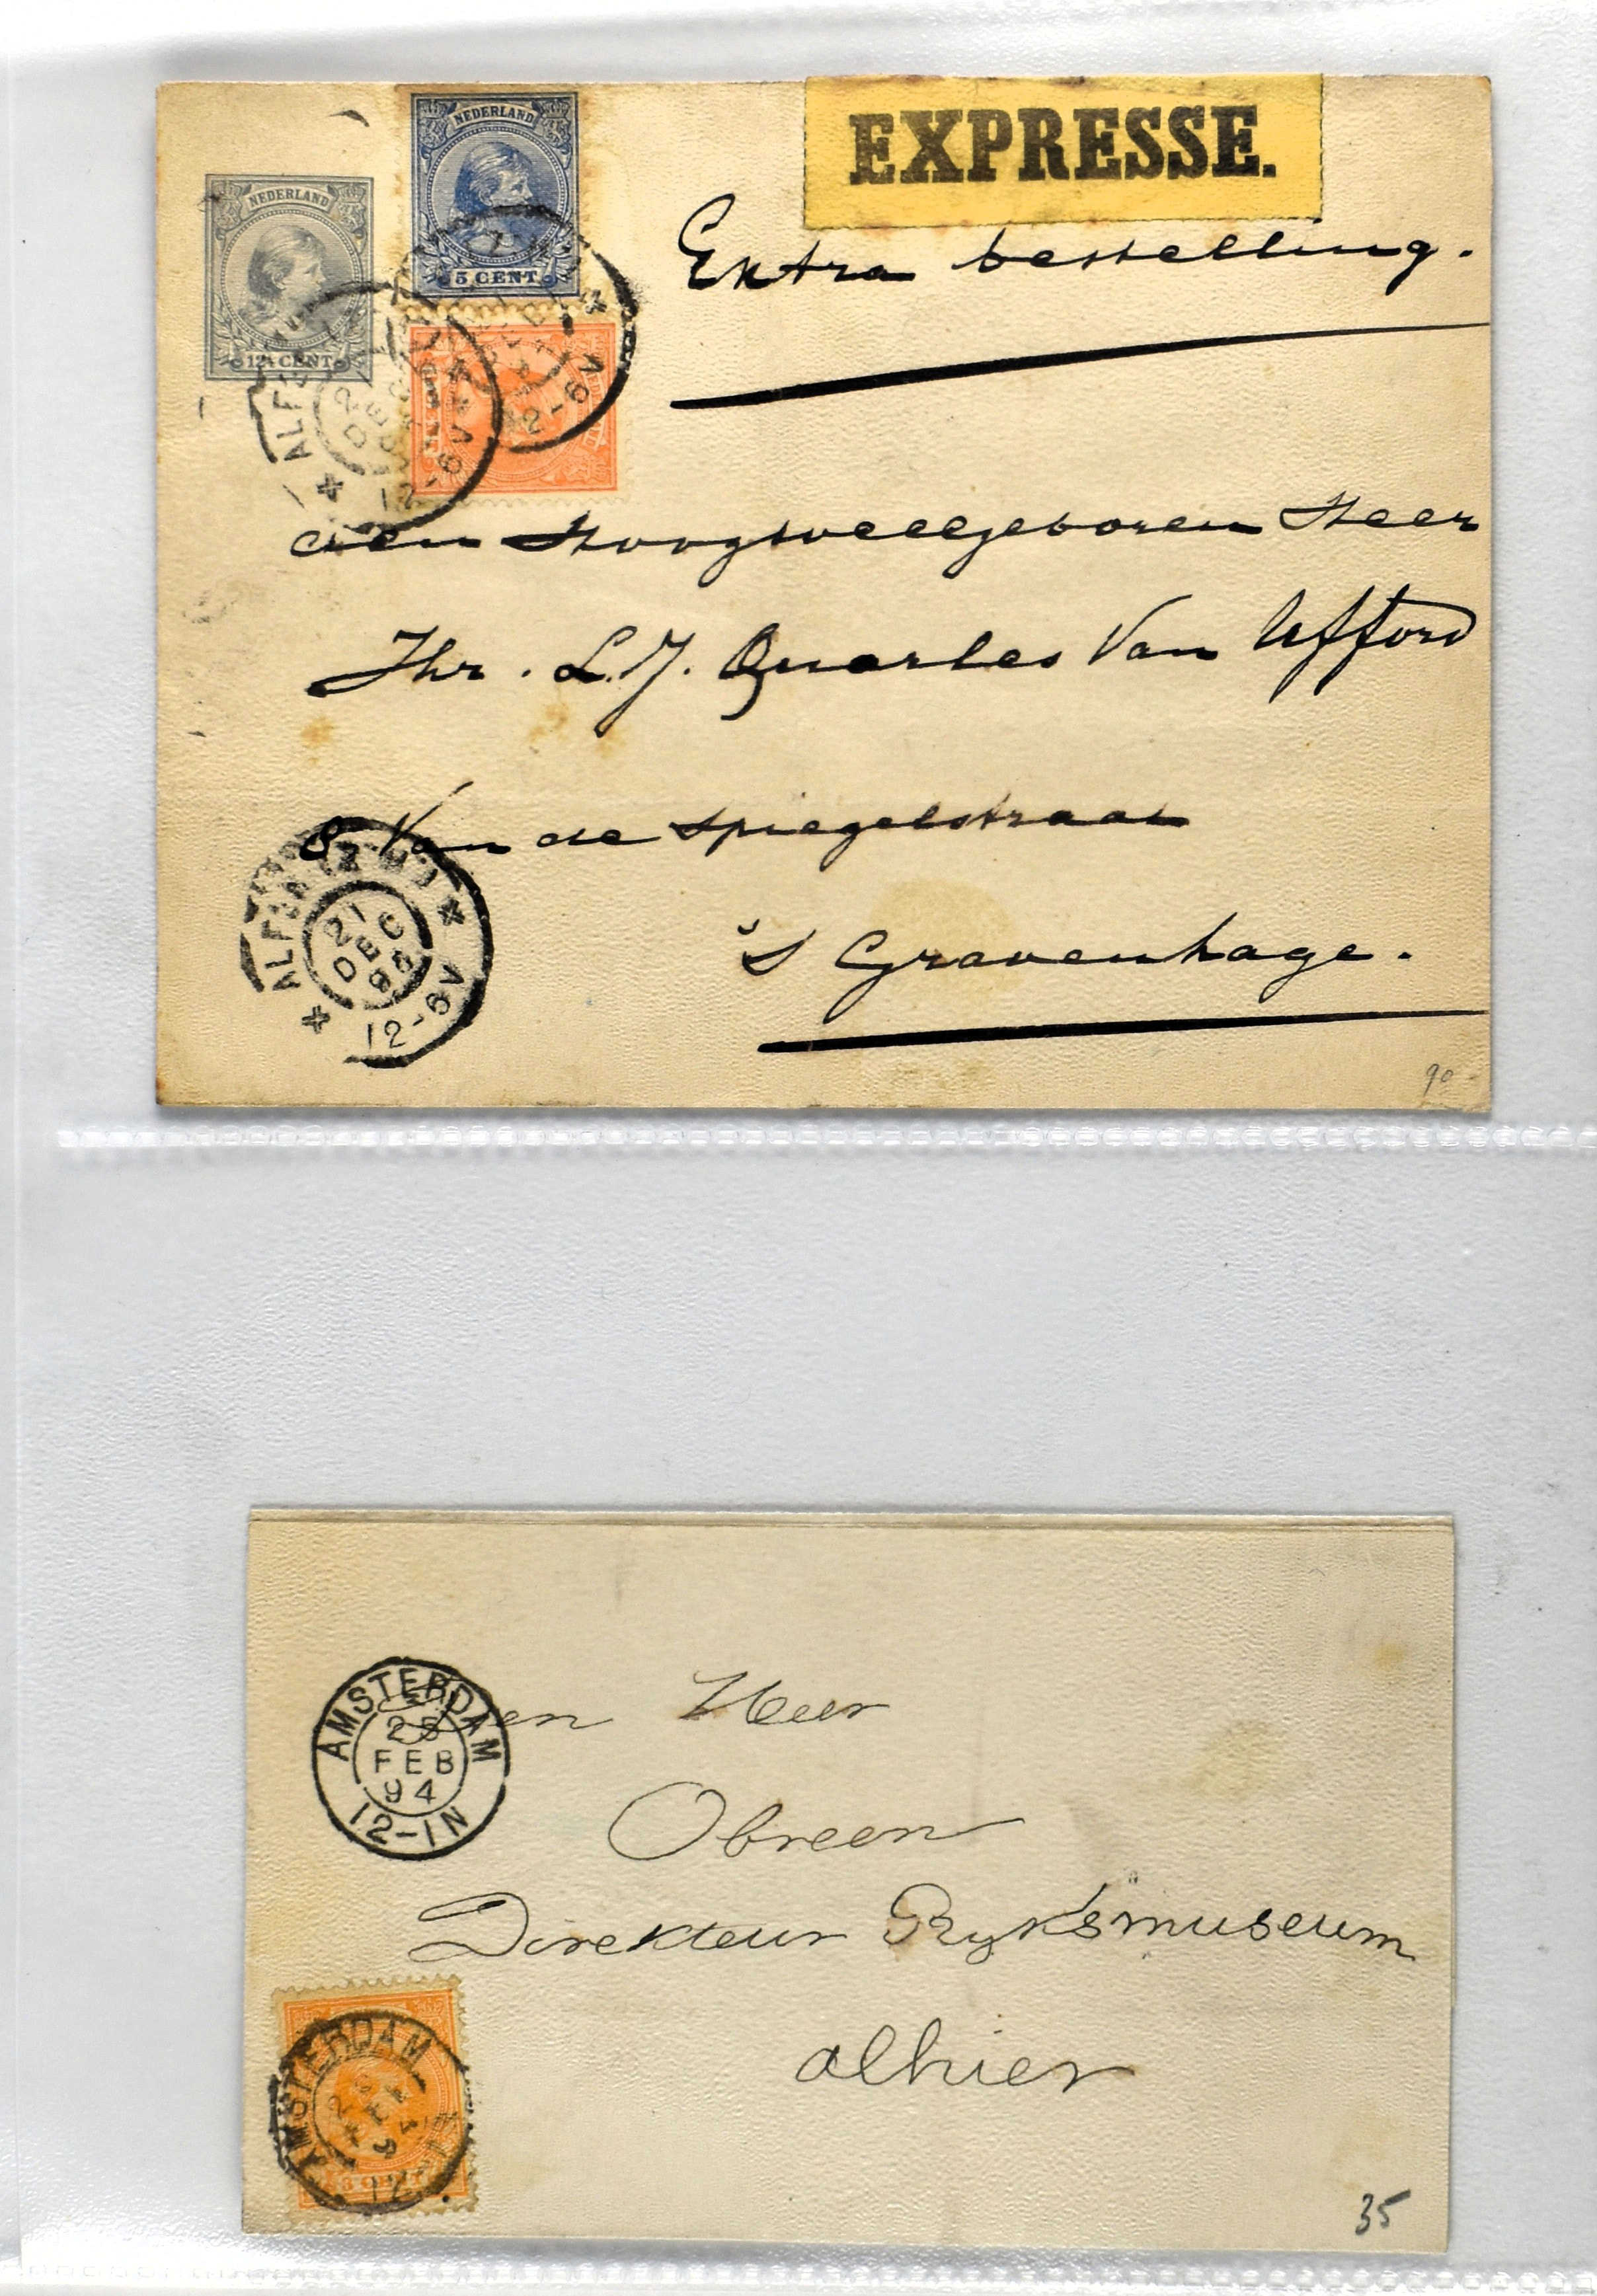 EXPRESSE.
NEDERLAND
5 CENT
NEDERLAND
12½ CENT
Extra bestelling.
12-6V
12-6V
den Hoogwelgeboren Heer
Jhr. L.J. Quarles Van Ufford
8 Van de Spiegelstraat
ALFEN (Z.H.)
21
DEC
95
12-6V
's Gravenhage.
90
AMSTERDAM
FEB
94
12-1N
Den Heer
Obreen
Direkteur Ryksmuseum
alhier
AMSTERDAM
94
35